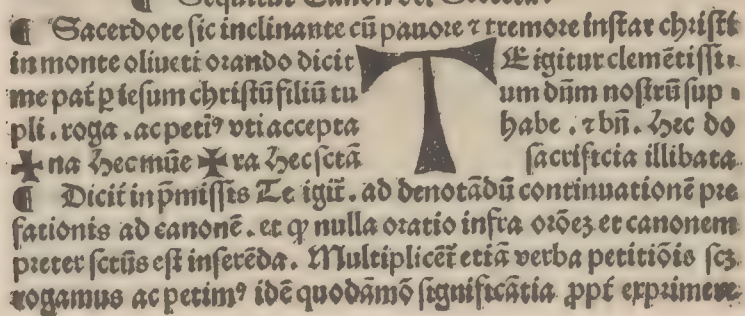 ¶ Sequitur Canon vel Secreta.
¶ Sacerdote sic inclinante cū pauore ⁊ tremore instar christi
in monte oliueti orando dicit T E igitur clemētissi⸗
me pat̄ ꝑ iesum christū filiū tu um dn̄m nostrū sup ⸗
pli . roga . ac petiꝰ vti accepta habe . ⁊ bn̄. Hec do
✠ na Hec mūe ✠ ra Hec sctā sacrificia illibata
¶ Dicit̄ in p̄missis Te igit̄. ad denotādū continuationē pre
fationis ad canonē. et ꝙ nulla oratio infra orōeꝫ et canonem
preter sctūs est inserēda. Multiplicēt̄ etiā verba petitiōis scꝫ
rogamus ac petimꝰ idē quodāmō significātia ꝓpt̄ exprimere